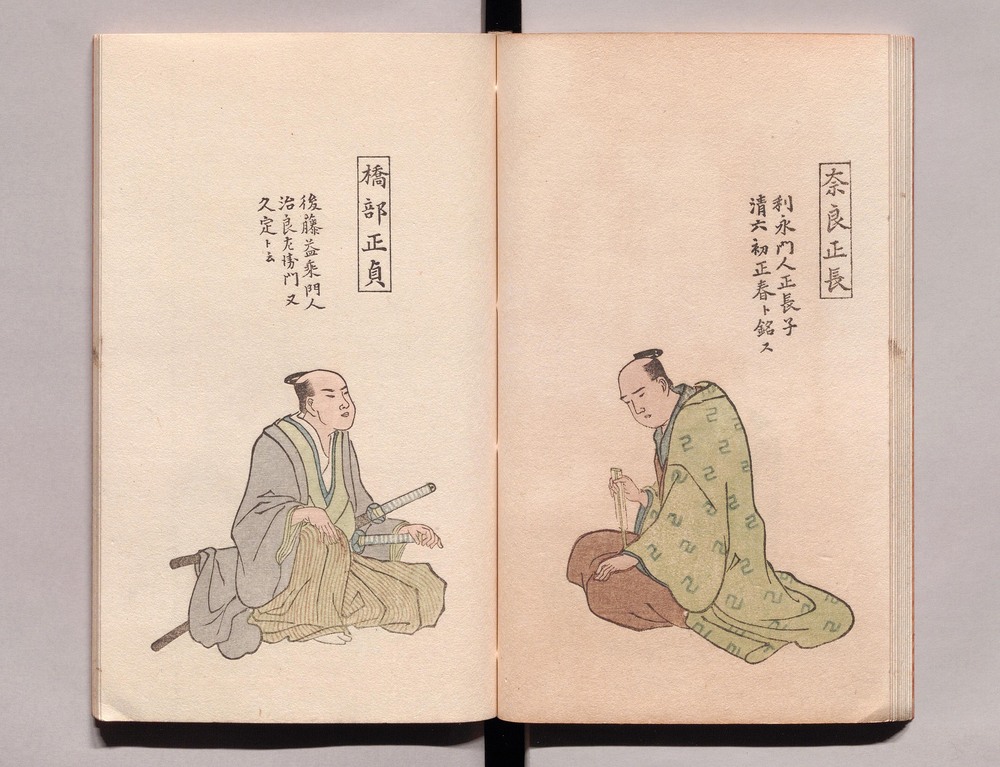 奈良正長
利永門人正長子
清六初正春ト銘ス
橋部正貞
後藤益乗門人
治良左衛門又
久定ト云